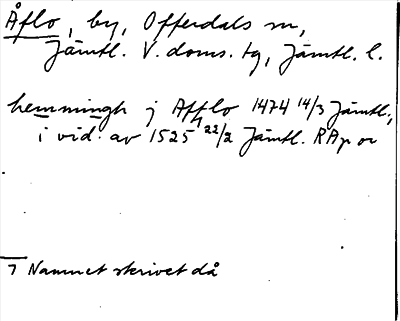 Åflo, by, Offerdals sn,
Jämtl. V. doms. tg, Jämtl. l.
hemmingh j Affло 1474 14/3 Jämtl.,
i vid. av 1525 22/2 Jämtl. RAp or
7 Namnet skrivet då